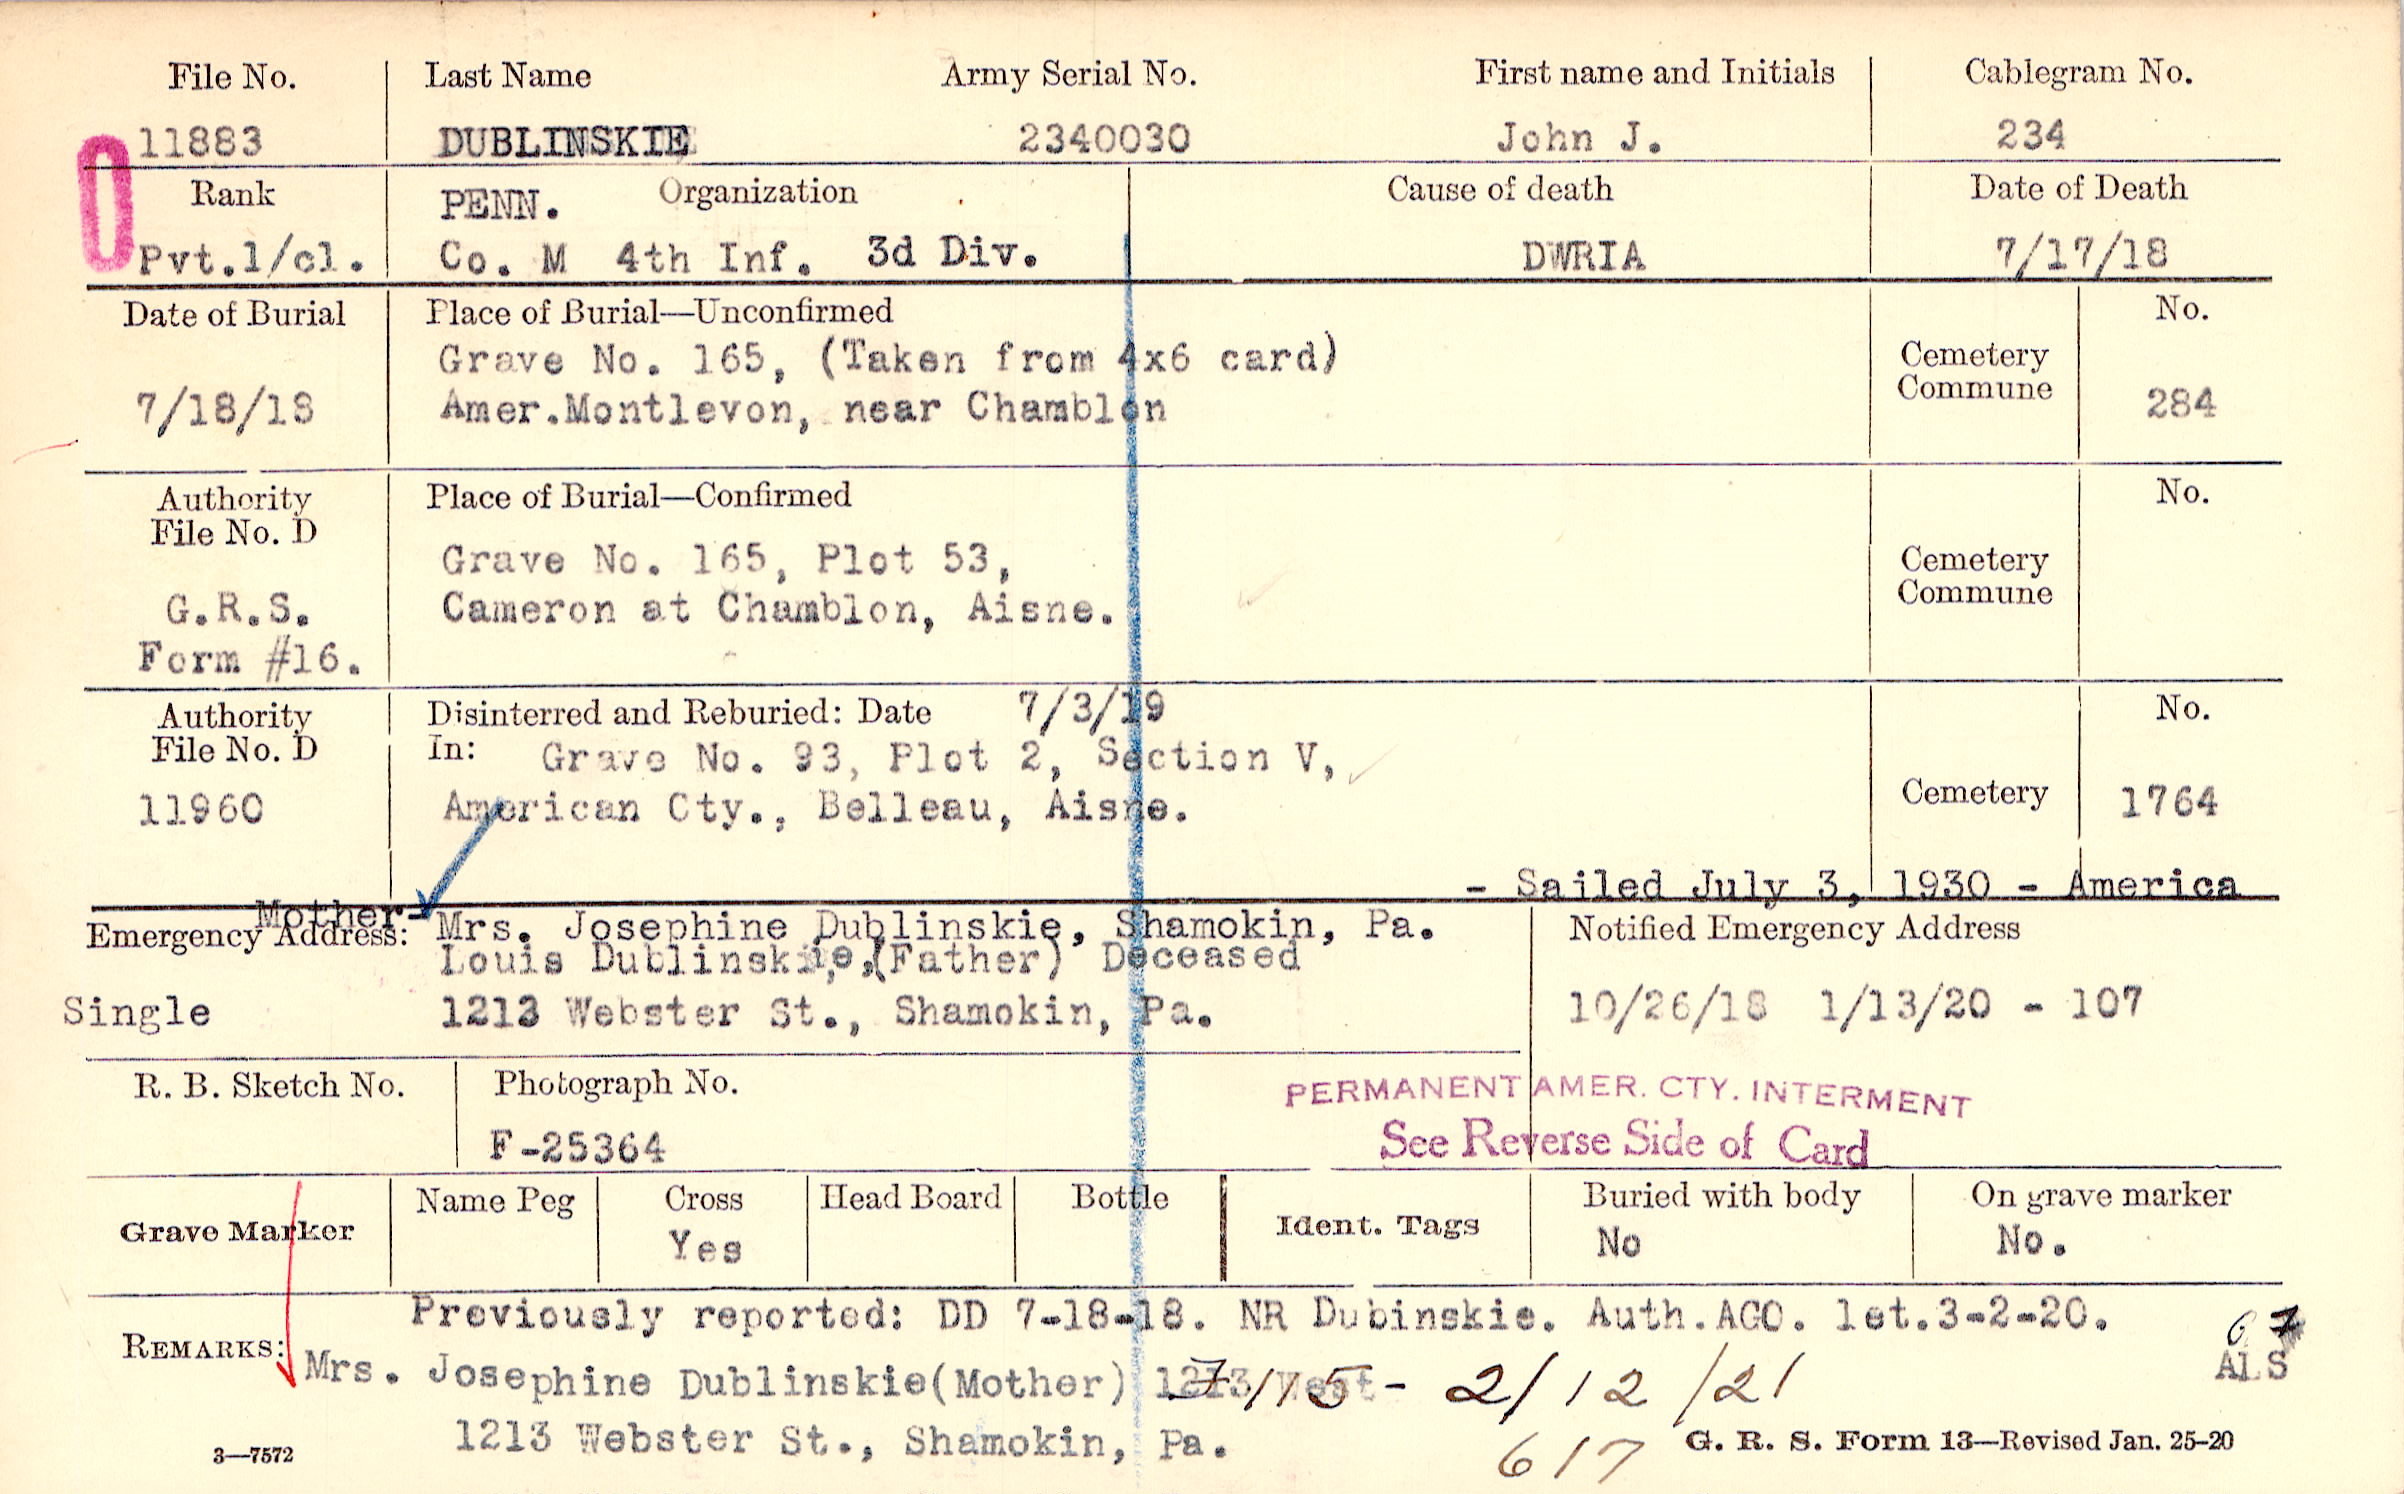 File No. Last Name Army Serial No. First name and Initials Cablegram No.
11883 DUBLINSKIE 2340030 John J. 234
Rank PENN. Organization Cause of death Date of Death
Pvt.1/cl. Co. M 4th Inf. 3d Div. DWRIA 7/17/18
Date of Burial Place of Burial—Unconfirmed No.
Grave No. 165, (Taken from 4x6 card) Cemetery
7/18/18 Amer.Montlevon, near Chamblon Commune 284
Authority Place of Burial—Confirmed No.
File No. D
Grave No. 165, Plot 53, Cemetery
G.R.S. Cameron at Chamblon, Aisne. Commune
Form #16.
Authority Disinterred and Reburied: Date 7/3/19 No.
File No. D In: Grave No. 93, Plot 2, Section V,
11960 American Cty., Belleau, Aisne. Cemetery 1764
- Sailed July 3, 1930 - America
Mother-Mrs. Josephine Dublinskie, Shamokin, Pa. Notified Emergency Address
Emergency Address: Louis Dublinskie,(Father) Deceased
Single 1213 Webster St., Shamokin, Pa. 10/26/18 1/13/20 - 107
R. B. Sketch No. Photograph No. PERMANENT AMER. CTY. INTERMENT
F-25364 See Reverse Side of Card
Grave Marker Name Peg Cross Head Board Bottle Ident. Tags Buried with body On grave marker
Yes No No.
Previously reported: DD 7-18-18. NR Dubinskie. Auth.AGO. let.3-2-20.
REMARKS: ALS
Mrs. Josephine Dublinskie(Mother) - 2/12/21
1213 Webster St., Shamokin, Pa. 617
3—7572 G. R. S. Form 13—Revised Jan. 25-20